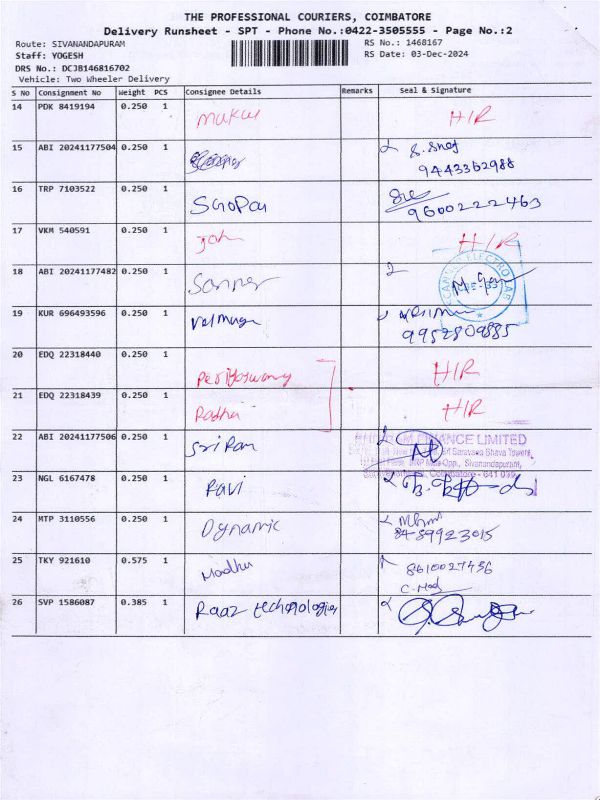 THE PROFESSIONAL COURIERS, COIMBATORE
Delivery Runsheet - SPT - Phone No.:0422-3505555 - Page No.:2
Route: SIVANANDAPURAM
RS No.: 1468167
Staff: YOGESH
RS Date: 03-Dec-2024
DRS No.: DCJB146816702
Vehicle: Two Wheeler Delivery
S No Consignment No Weight PCS Consignee Details Remarks Seal & Signature
14 PDK 8419194 0.250 1 H/R
15 ABI 20241177504 0.250 1 9443362988
16 TRP 7103522 0.250 1 9600222463
17 VKM 540591 0.250 1 John H/R
18 ABI 20241177482 0.250 1
19 KUR 696493596 0.250 1 Velmuga 9952809885
20 EDQ 22318440 0.250 1 H/R
21 EDQ 22318439 0.250 1 Radha H/R
22 ABI 20241177506 0.250 1 Sri Ram
FINANCE LIMITED
Sivanandapuram,
23 NGL 6167478 0.250 1 Ravi
24 MTP 3110556 0.250 1 Dynamic
25 TKY 921610 0.575 1 Madhu 8610027456
26 SVP 1586087 0.385 1 Raaz technologies